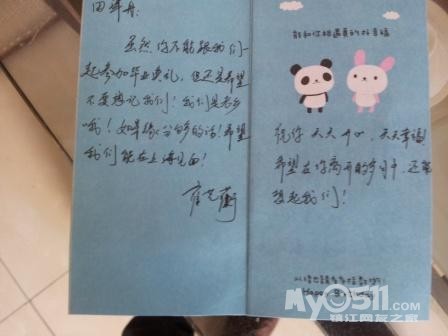 虽然你不能跟我们一
起参加毕业典礼，但还是希望
不要忘记我们！我们是老乡
哦！如果缘分够的话！希望
我们能在上海见面！
能和你相遇真的好幸福
祝你天天开心，天天幸福
希望在你离开的岁月中，还能
想起我们！
Happy Birthday
My0511
镇江网友之家